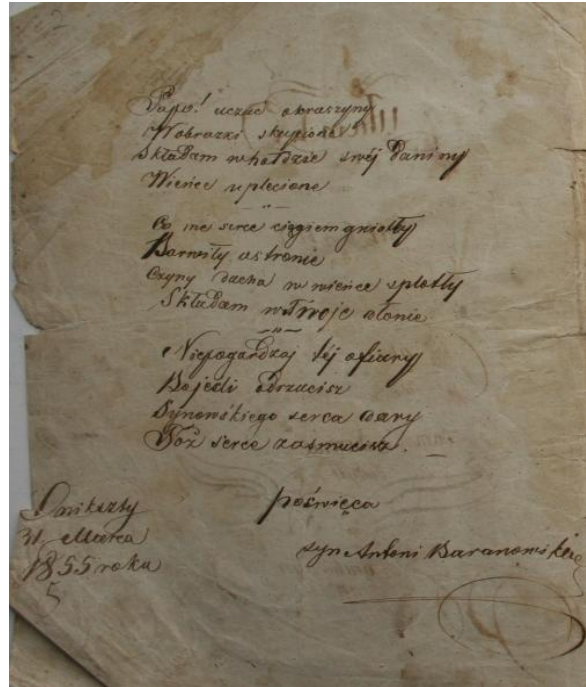 Papo! uczuć okraszyny
W obrazki skupione
Składam w hołdzie swéj daniny
Wieńce uplecione
Co me serce ciągiem gniotły
Barwiły ustronie
Czyny ducha w wieńce splotły
Składam w Twoje dłonie
Niepogardzaj téj ofiary
Bo jeśli odrzucisz
Synowskiego serca dary
Toż serce zasmucisz.
poświęca
Onikszty
31 Marca
1855 roku
5
syn Antoni Baranowski